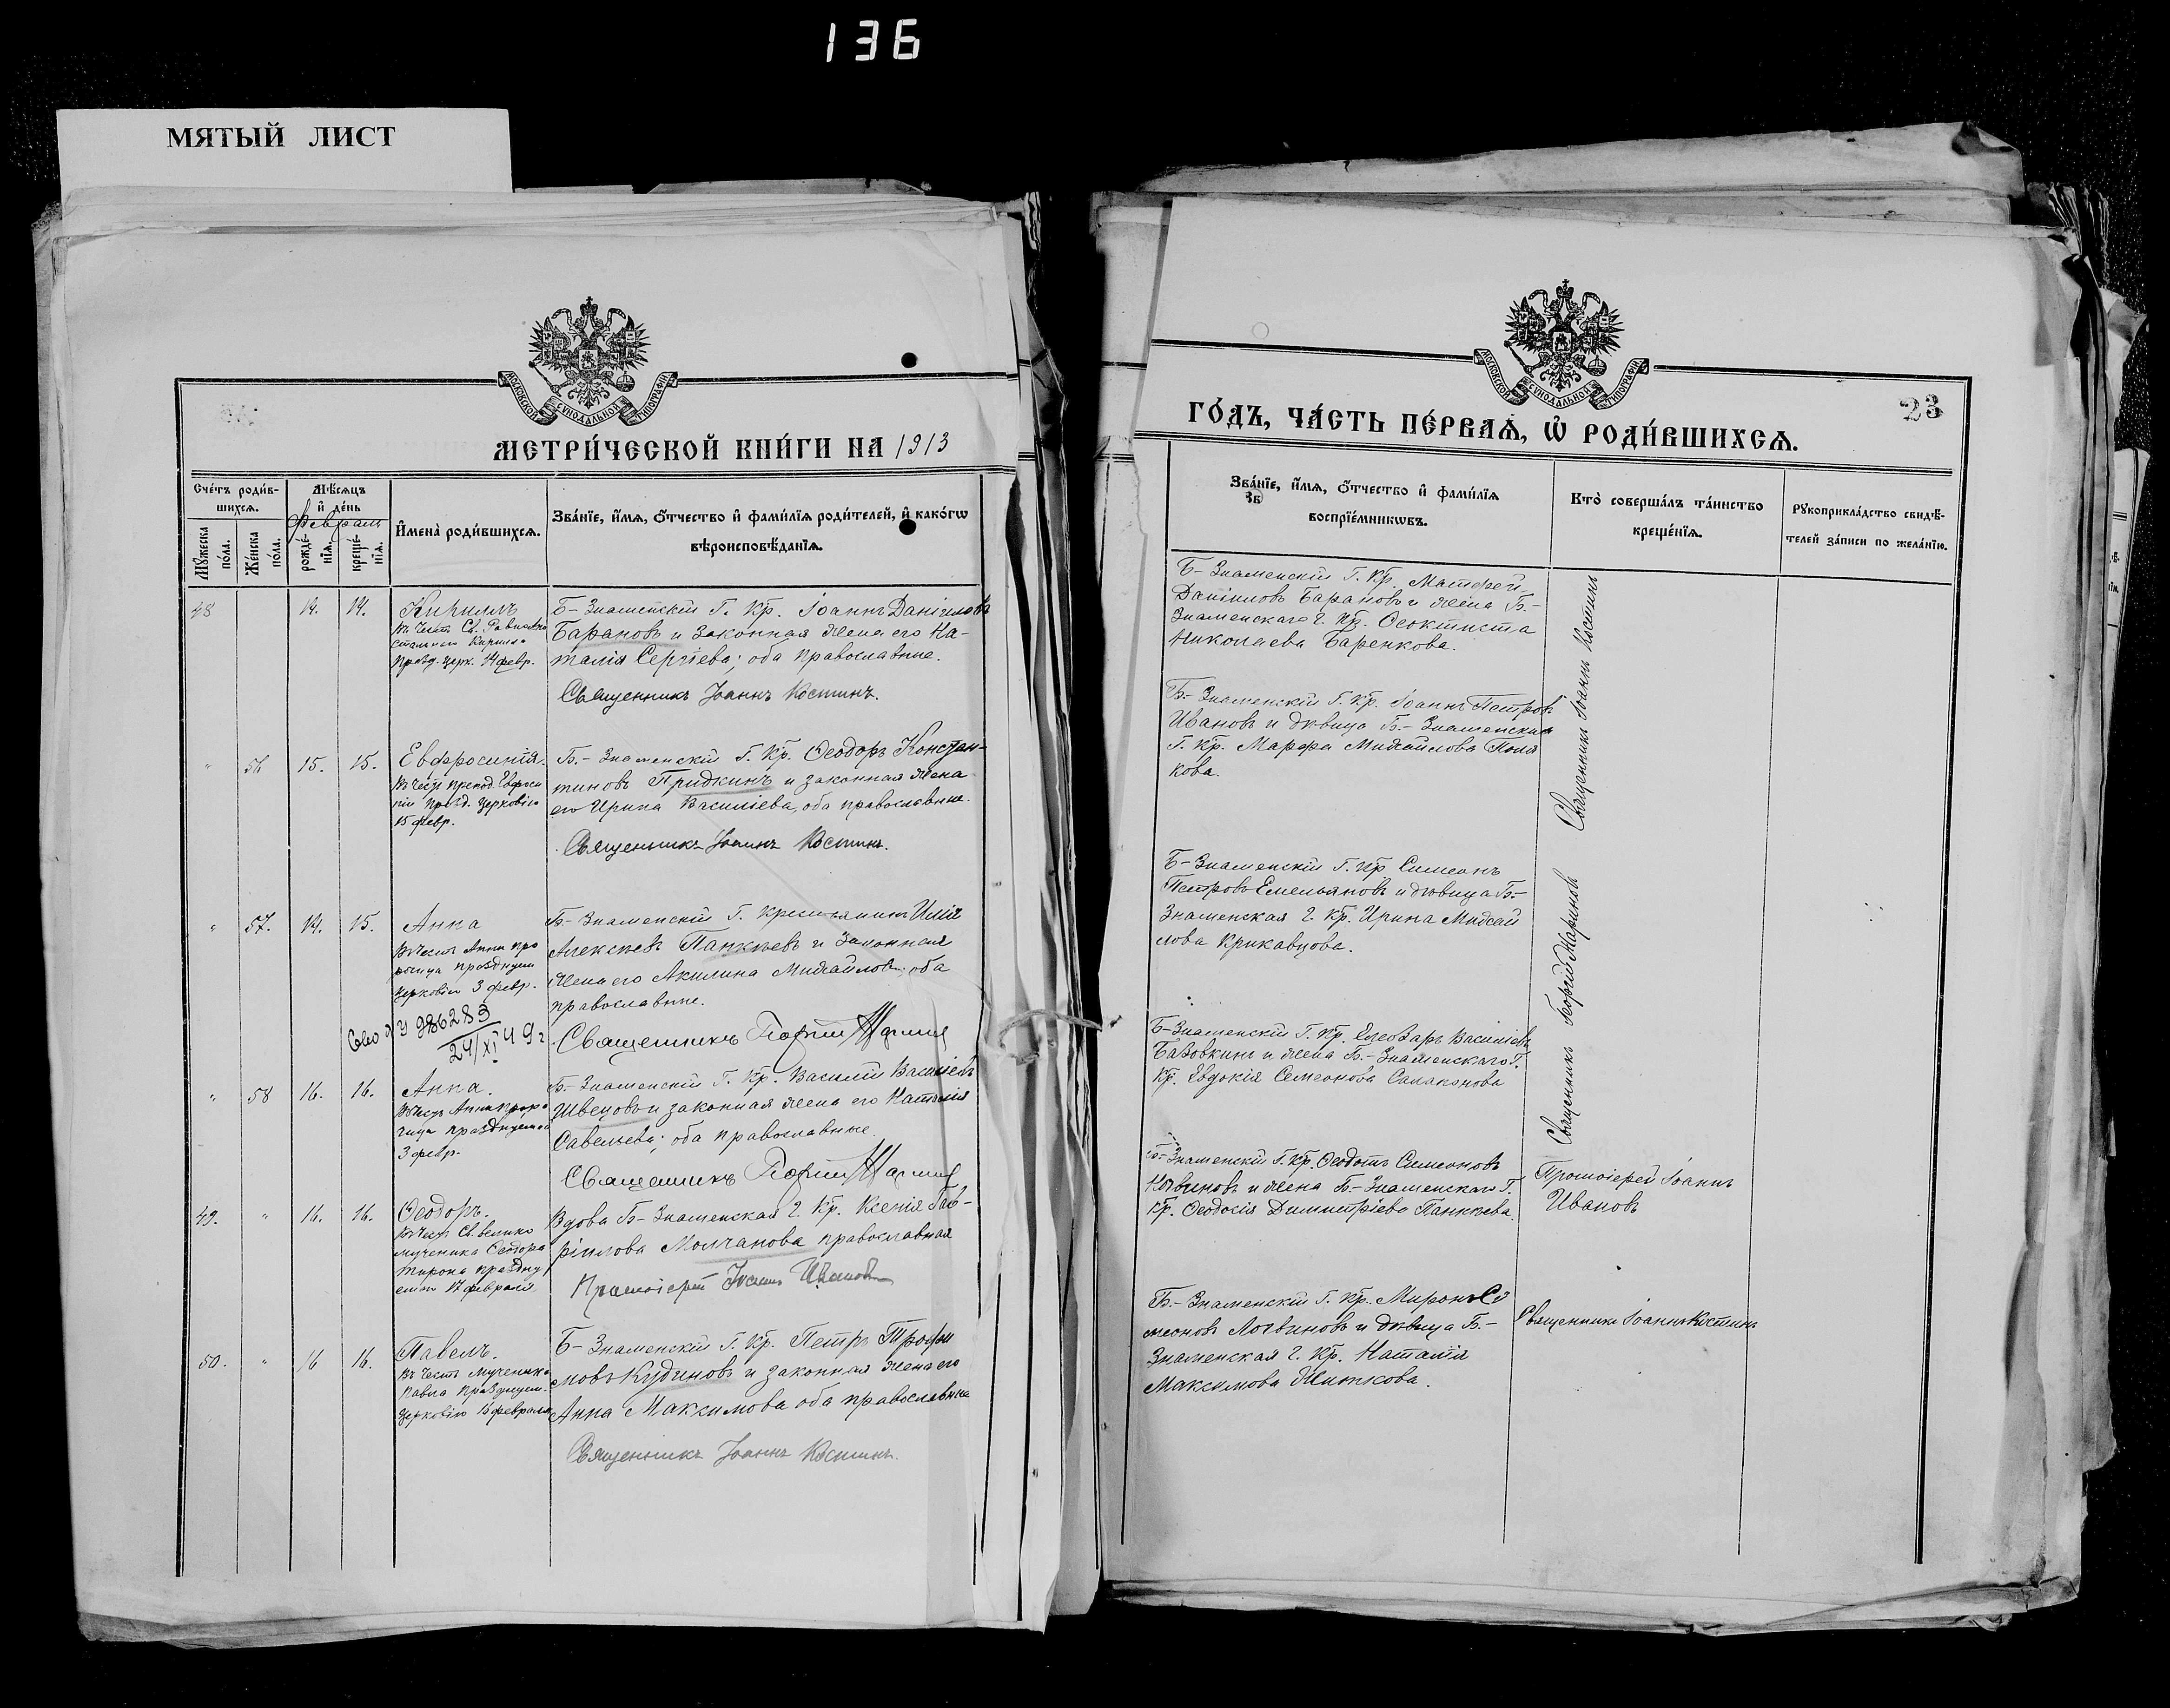 136
МЯТЫЙ ЛИСТ
МОСКОВСКОЙ СѴНОДАЛЬНОЙ ТИПОГРАФІИ
МЕТРИ́ЧЕСКОЙ КНИ́ГИ НА 1913
Сче́тъ роди́в-
шихсѧ.
Мѣ́сѧцъ
и҆ де́нь
Февраль
Мꙋ́жеска
по́ла.
Же́нска
по́ла.
рожде́-
нїѧ.
креще́-
нїѧ.
И҆мена̀ роди́вшихсѧ.
Зва́нїе, и҆́мѧ, ѻ҆́тчество и҆ фами́лїѧ роди́телей, и҆ како́гѡ
вѣроисповѣ́данїѧ.
48 14. 14. Кириллъ
въ честь Св. Равноапо
стольнаго Кирилла
празд. церк. 14 февр.
Б-Знаменскій Г. Кр. Іоаннъ Даніиловъ
Барановъ и законная жена его На-
талія Сергіева; оба православные.
Священникъ Іоаннъ Костинъ.
" 56 15. 15. Евфросинія.
въ честь препод. Евфроси
ніи празд. церковію
15 февр.
Б.-Знаменскій Г. Кр. Ѳеодоръ Констан-
тиновъ Придкинъ и законная жена
его Ирина Василіева, оба православные.
Священникъ Іоаннъ Костинъ.
" 57. 14. 15. Анна
въ честь Анны про
рочицы празднуем
церковію 3 февр.
Б-Знаменскій Г. крестьянинъ Илія
Алексѣевъ Панкѣевъ и законная
жена его Акилина Михайлова; оба
православные.
286283
24/XI 49 г
Священникъ Георгій Маринов
" 58 16. 16. Анна.
въ честь Анны проро
чицы празднуемой
3 февр.
Б-Знаменскій Г. Кр. Василій Василіевъ
Швецовъ и законная жена его Наталія
Савельева; оба православные.
Священникъ Георгій Маринов
49. " 16. 16. Ѳеодоръ.
въ честь Св. велико
мученика Ѳеодора
Тирона праздну
емаго 17 февраля.
Вдова Б-Знаменская Г. Кр. Ксенія Гав-
ріилова Молчанова православная
Протоіерей Іоаннъ Ивановъ
50. " 16 16. Павелъ.
въ честь мученика
Павла празднуем.
церковію 16 февраля
Б-Знаменскій Г. Кр. Петръ Трофи
мовъ Кудиновъ и законная жена его
Анна Максимова оба православные
Священникъ Іоаннъ Костинъ.
МОСКОВСКОЙ СѴНОДАЛЬНОЙ ТИПОГРАФІИ
ГО́ДЪ, ЧА́СТЬ ПЕ́РВАѦ, Ѡ҆ РОДИ́ВШИХСѦ.
23
Зва́нїе, и҆́мѧ, ѻ҆́тчество и҆ фами́лїѧ
воспрїе́мникѡвъ.
Кто̀ соверша́лъ та́инство
креще́нїѧ.
Рꙋкоприкла́дство свидѣ́-
телей за́писи по жела́нїю.
Б-Знаменскій Г. Кр. Матфей
Даніиловъ Барановъ и жена Б.-
Знаменскаго Г. Кр. Ѳеоктиста
Николаева Баренкова.
Священникъ Іоаннъ Костинъ
Б.-Знаменскій Г. Кр. Іоаннъ Петровъ
Ивановъ и дѣвица Б.-Знаменская
Г. Кр. Марфа Михайлова Поля
кова.
Б-Знаменскій Г. Кр Симеонъ
Петровъ Емельяновъ и дѣвица Б.-
Знаменская Г. Кр. Ирина Михай
лова Крикавцова.
Священникъ Георгій Мариновъ
Б-Знаменскій Г. Кр. Елеозаръ Василіевъ
Базовкинъ и жена Б.-Знаменскаго Г.
Кр. Евдокія Семеонова Салаконова
Б-Знаменскій Г. Кр. Ѳеодотъ Симеоновъ
Логвиновъ и жена Б-Знаменскаго Г.
Кр. Ѳеодосія Димитріева Панкѣева.
Протоіерей Іоаннъ
Ивановъ
Б.-Знаменскій Г. Кр. Миронъ Си
меоновъ Логвиновъ и дѣвица Б.-
Знаменская Г. Кр. Наталія
Максимова Житкова.
Священникъ Іоаннъ Костинъ